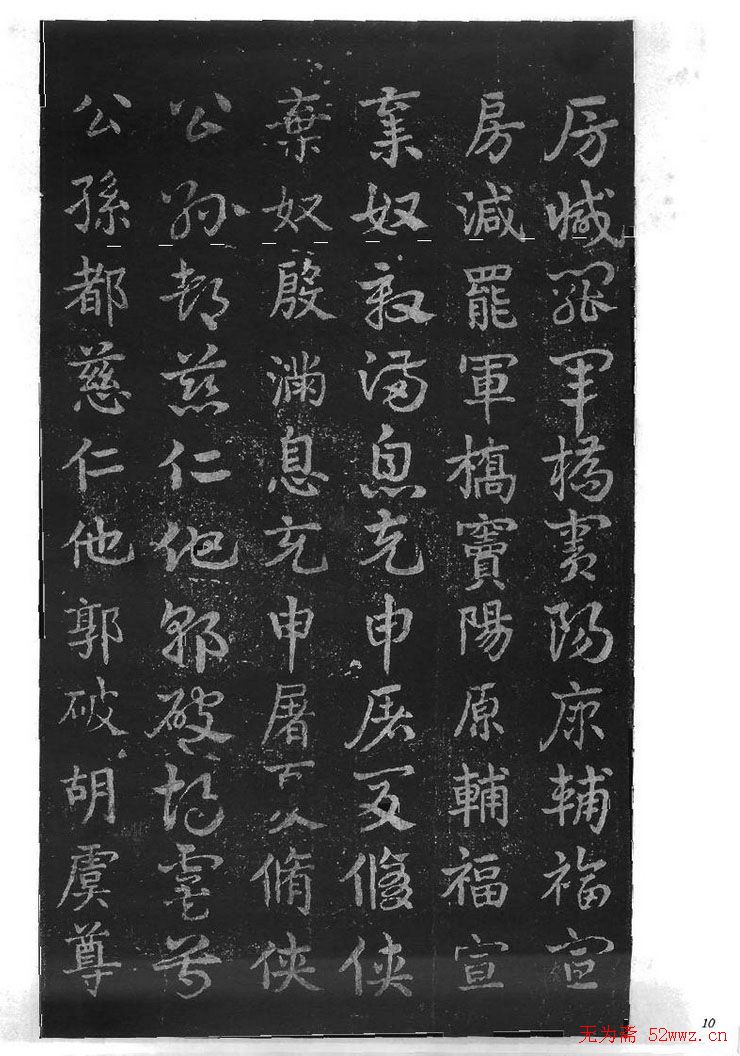 房減罷軍橋竇陽原輔福宣
房減罷軍橋竇陽原輔福宣
棄奴殷滿息充申屠夏脩俠
棄奴殷滿息充申屠夏脩俠
公孫都慈仁他郭破胡虞尊
公孫都慈仁他郭破胡虞尊
10
无为斋 52wwz.cn